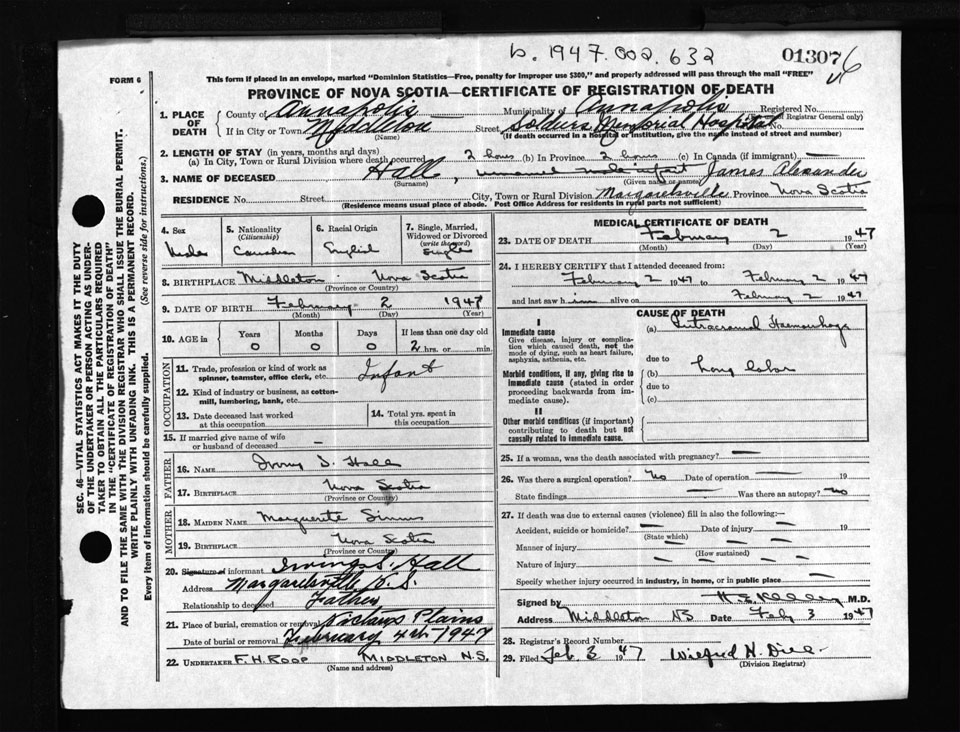 b. 1947.002.632
01307 6
FORM 6
This form if placed in an envelope, marked "Dominion Statistics—Free, penalty for improper use $300," and properly addressed will pass through the mail "FREE"
PROVINCE OF NOVA SCOTIA—CERTIFICATE OF REGISTRATION OF DEATH
SEC. 46—VITAL STATISTICS ACT MAKES IT THE DUTY
OF THE UNDERTAKER OR PERSON ACTING AS UNDER-
TAKER TO OBTAIN ALL THE PARTICULARS REQUIRED
IN THE "CERTIFICATE OF REGISTRATION OF DEATH"
AND TO FILE THE SAME WITH THE DIVISION REGISTRAR WHO SHALL ISSUE THE BURIAL PERMIT.
WRITE PLAINLY WITH UNFADING INK. THIS IS A PERMANENT RECORD.
Every item of information should be carefully supplied. (See reverse side for instructions.)
1. PLACE OF DEATH
County of Annapolis Municipality of Annapolis Registered No.
(Registrar General only)
If in City or Town Middleton Street Soldiers Memorial Hospital No.
(Name) (If death occurred in a hospital or institution, give the name instead of street and number)
2. LENGTH OF STAY (in years, months and days)
(a) In City, Town or Rural Division where death occurred 2 hours (b) In Province 2 hours (c) In Canada (if immigrant) —
3. NAME OF DECEASED Hall, unnamed male infant James Alexander
(Surname) (Given name or names)
RESIDENCE No. Street City, Town or Rural Division Margaretsville Province Nova Scotia
(Residence means usual place of abode. Post Office Address for residents in rural parts not sufficient)
4. Sex
Male
5. Nationality
(Citizenship)
Canadian
6. Racial Origin
English
7. Single, Married, Widowed or Divorced
(write the word)
Single
8. BIRTHPLACE Middleton Nova Scotia
(Province or Country)
9. DATE OF BIRTH February 2 1947
(Month) (Day) (Year)
10. AGE in
Years Months Days If less than one day old
0 0 0 2 hrs. or min.
OCCUPATION
11. Trade, profession or kind of work as spinner, teamster, office clerk, etc. Infant
12. Kind of industry or business, as cotton-mill, lumbering, bank, etc.
13. Date deceased last worked at this occupation
14. Total yrs. spent in this occupation
15. If married give name of wife or husband of deceased —
FATHER
16. NAME Irving S. Hall
17. BIRTHPLACE Nova Scotia
(Province or Country)
MOTHER
18. MAIDEN NAME Marguerite Simms
19. BIRTHPLACE Nova Scotia
(Province or Country)
20. Signature of informant Irving S. Hall
Address Margaretsville N.S.
Relationship to deceased Father
21. Place of burial, cremation or removal Victaus Plains
Date of burial or removal February 4th 1947
22. UNDERTAKER F.H. ROOP MIDDLETON N.S.
(Name and address)
MEDICAL CERTIFICATE OF DEATH
23. DATE OF DEATH February 2 1947
(Month) (Day) (Year)
24. I HEREBY CERTIFY that I attended deceased from:
February 2 1947 to February 2 1947
and last saw him alive on February 2 1947
CAUSE OF DEATH
I
Immediate cause
Give disease, injury or complication which caused death, not the mode of dying, such as heart failure, asphyxia, asthenia, etc.
(a) Intracranial Haemorrhage
due to
Morbid conditions, if any, giving rise to immediate cause (stated in order proceeding backwards from immediate cause).
(b) Long labor
due to
(c)
II
Other morbid conditions (if important) contributing to death but not causally related to immediate cause.
25. If a woman, was the death associated with pregnancy? —
26. Was there a surgical operation? No Date of operation — 19
State findings — Was there an autopsy? No
27. If death was due to external causes (violence) fill in also the following:—
Accident, suicide or homicide? — Date of injury — 19
(State which)
Manner of injury — — —
(How sustained)
Nature of injury — — —
Specify whether injury occurred in industry, in home, or in public place —
Signed by H.E. Kelley M.D.
Address Middleton NS Date Feb 3 1947
28. Registrar's Record Number
29. Filed Feb. 3 1947 Wilfred H.
(Division Registrar)